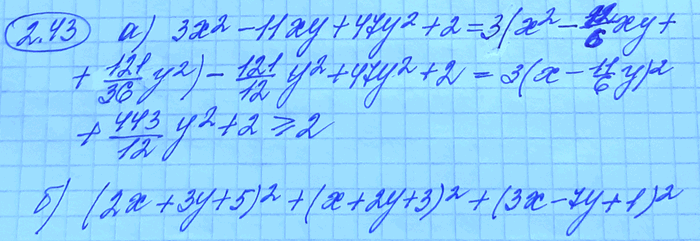 2.43 а) 3x² - 11xy + 47y² + 2 = 3(x² - 11/6 xy +
+ 121/36 y²) - 121/12 y² + 47y² + 2 = 3(x - 11/6 y)²
+ 443/12 y² + 2 ⩾ 2
б) (2x + 3y + 5)² + (x + 2y + 3)² + (3x - 7y + 1)²